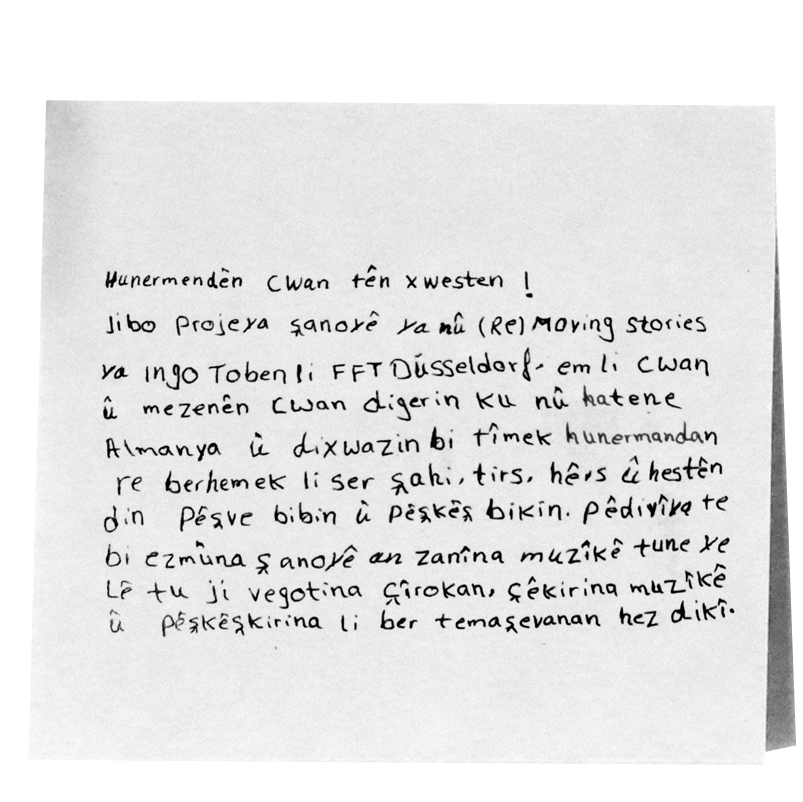 Hunermendên Cwan tên xwesten !
Jibo Projeya şanoyê ya nû (Re) Moving Stories
ya Ingo Toben li FFT Düsseldorf. em li Cwan
û mezenên Cwan digerin ku nû hatene
Almanya û dixwazin bi tîmek hunermandan
re berhemek li ser şahi, tirs, hêrs û hestên
din Pêşve bibin û Pêşkêş bikin. Pêdivîya te
bi ezmûna şanoyê an zanîna muzîkê tune ye
Lê tu ji vegotina Çîrokan, çêkirina muzîkê
û Pêşkêşkirina li ber temaşevanan hez dikî.